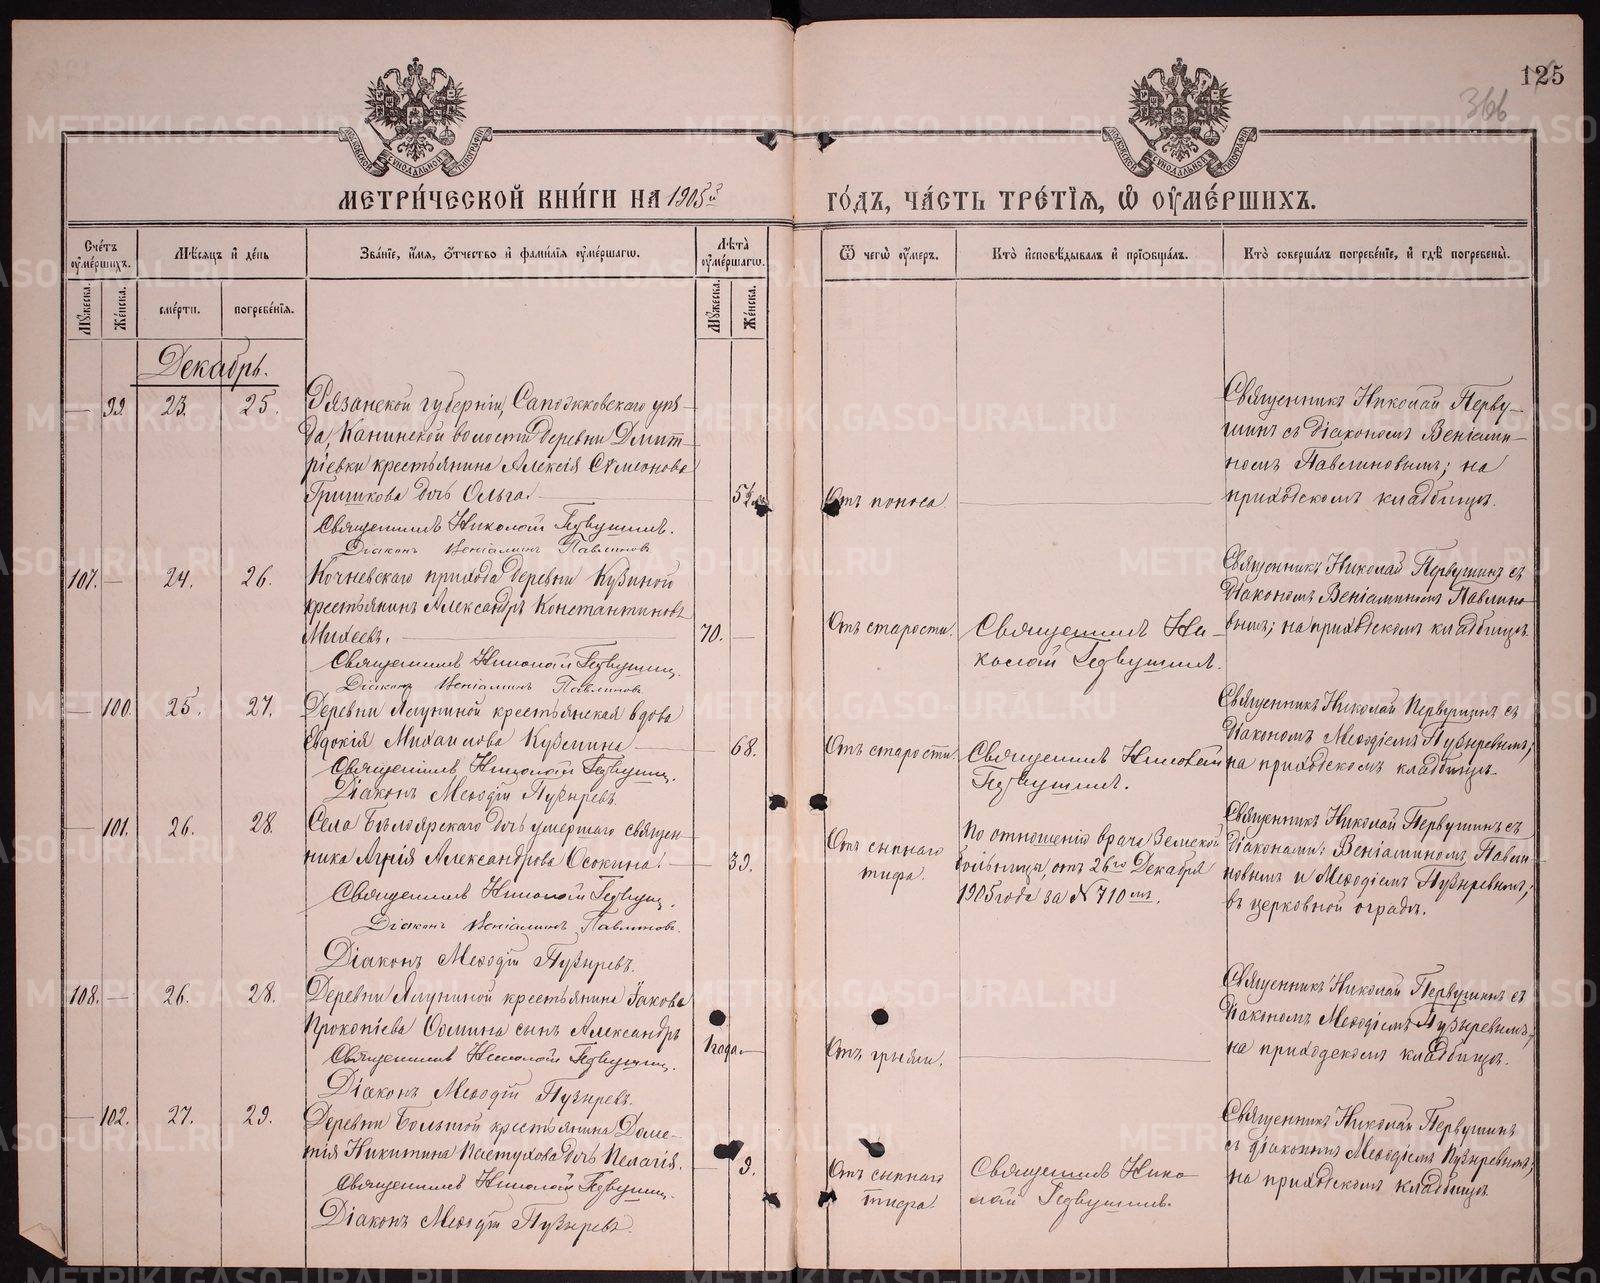 125
366
МЕТРИ́ЧЕСКОЙ КНИ́ГИ НА 1905й
ГО́ДЪ, ЧА́СТЬ ТРЕ́ТІѦ, Ѽ ОУМЕ́РШИХЪ.
Сче́тъ оуме́ршихъ.
Мѣ́сяцъ и де́нь
Зва́ніе, и́мя, о́тчество и фами́лія оуме́ршагѡ.
Лѣ́та оуме́ршагѡ.
Ѿ чегѡ̀ оу́меръ.
Кто̀ и҆сповѣ́дывалъ и҆ пріѻбща́лъ.
Кто̀ соверша́лъ погребе́ніе, и҆ гдѣ̀ погребены̀.
Му́жеска.
Же́нска.
сме́рти.
погребе́нія.
Му́жеска.
Же́нска.
Декабрь.
99. 23. 25.
Рязанской губерніи, Сапожковскаго уѣз-
да, Канинской волости деревни Дмит-
ріевки крестьянина Алексія Симеонова
Гришкова дочь Ольга.
Священникъ Николай Первушинъ.
Діаконъ Веніаминъ Павлиновъ
Отъ поноса.
Священникъ Николай Перву-
шинъ съ діакономъ Веніами-
номъ Павлиновымъ; на
приходскомъ кладбищѣ.
107. 24. 26.
Кочневскаго прихода деревни Кузиной
крестьянинъ Александръ Константиновъ
Михеевъ. 70.
Священникъ Николай Первушинъ.
Діаконъ Веніаминъ Павлиновъ
Отъ старости.
Священникъ Ни-
колай Первушинъ.
Священникъ Николай Первушинъ съ
діакономъ Веніаминомъ Павлино-
вымъ; на приходскомъ кладбищѣ.
100. 25. 27.
Деревни Ялуниной крестьянская вдова
Евдокія Михаилова Кузмина 68.
Священникъ Николай Первушинъ.
Діаконъ Меѳодій Пузыревъ.
Отъ старости.
Священникъ Николай
Первушинъ.
Священникъ Николай Первушинъ съ
діакономъ Меѳодіемъ Пузыревымъ;
на приходскомъ кладбищѣ.
101. 26. 28.
Села Бѣлоярскаго дочь умершаго священ-
ника Агнія Александрова Осокина. 39.
Священникъ Николай Первушинъ.
Діаконъ Веніаминъ Павлиновъ.
Діаконъ Меѳодій Пузыревъ.
Отъ сыпнаго
тифа.
По отношенію врача Земской
больницы, отъ 26го Декабря
1905 года за № 710мъ.
Священникъ Николай Первушинъ съ
діаконами: Веніаминомъ Павли-
новымъ и Меѳодіемъ Пузыревымъ;
въ церковной оградѣ.
108. 26. 28.
Деревни Ялуниной крестьянина Іакова
Прокопіева Ѳомина сынъ Александръ
1 года
Священникъ Николай Первушинъ.
Діаконъ Меѳодій Пузыревъ.
Отъ грыжи.
Священникъ Николай Первушинъ съ
діакономъ Меѳодіемъ Пузыревымъ;
на приходскомъ кладбищѣ.
102. 27. 29.
Деревни Большой крестьянина Доме-
тія Никитина Пастухова дочь Пелагія. 9.
Священникъ Николай Первушинъ.
Діаконъ Меѳодій Пузыревъ.
Отъ сыпнаго
тифа.
Священникъ Нико
лай Первушинъ.
Священникъ Николай Первушинъ
съ діакономъ Меѳодіемъ Пузыревымъ;
на приходскомъ кладбищѣ.
METRIKI.GASO-URAL.RU